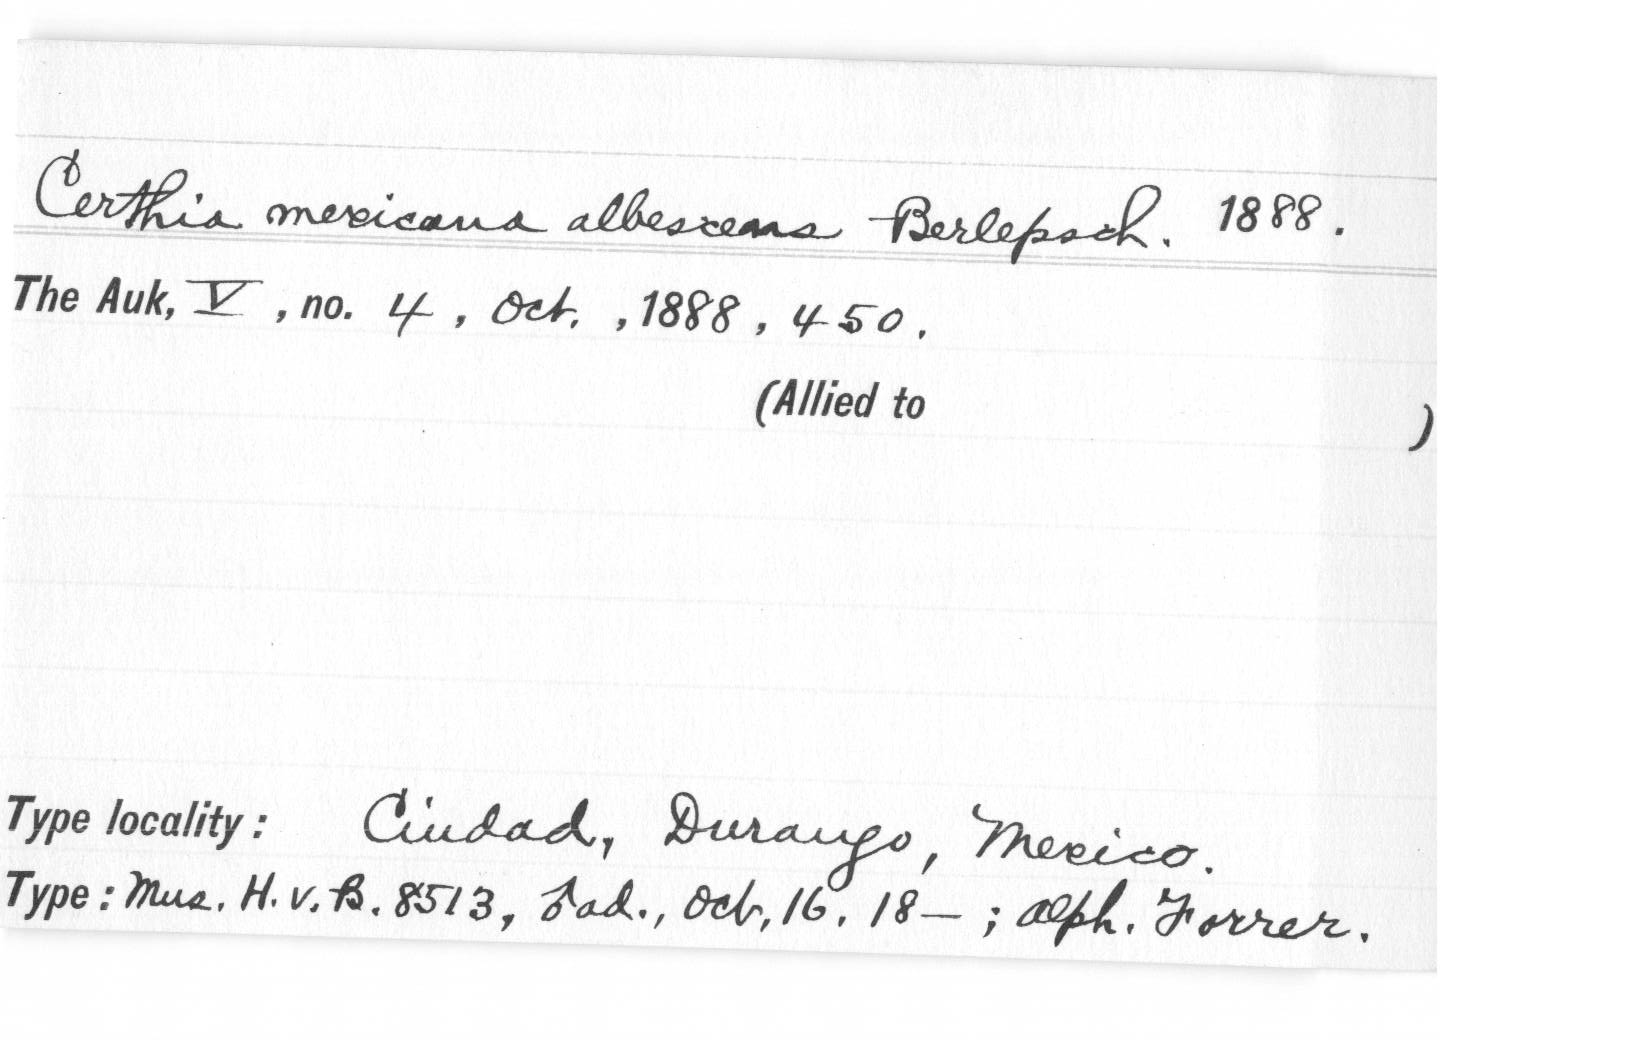 Certhia mexicana albescens Berlepsch. 1888.
The Auk, V, no. 4, Oct., 1888, 450.
(Allied to )
Type locality: Ciudad, Durango, Mexico.
Type: Mus. H. v. B. 8513, ♂ ad., Oct, 16. 18—; Alph. Forrer.